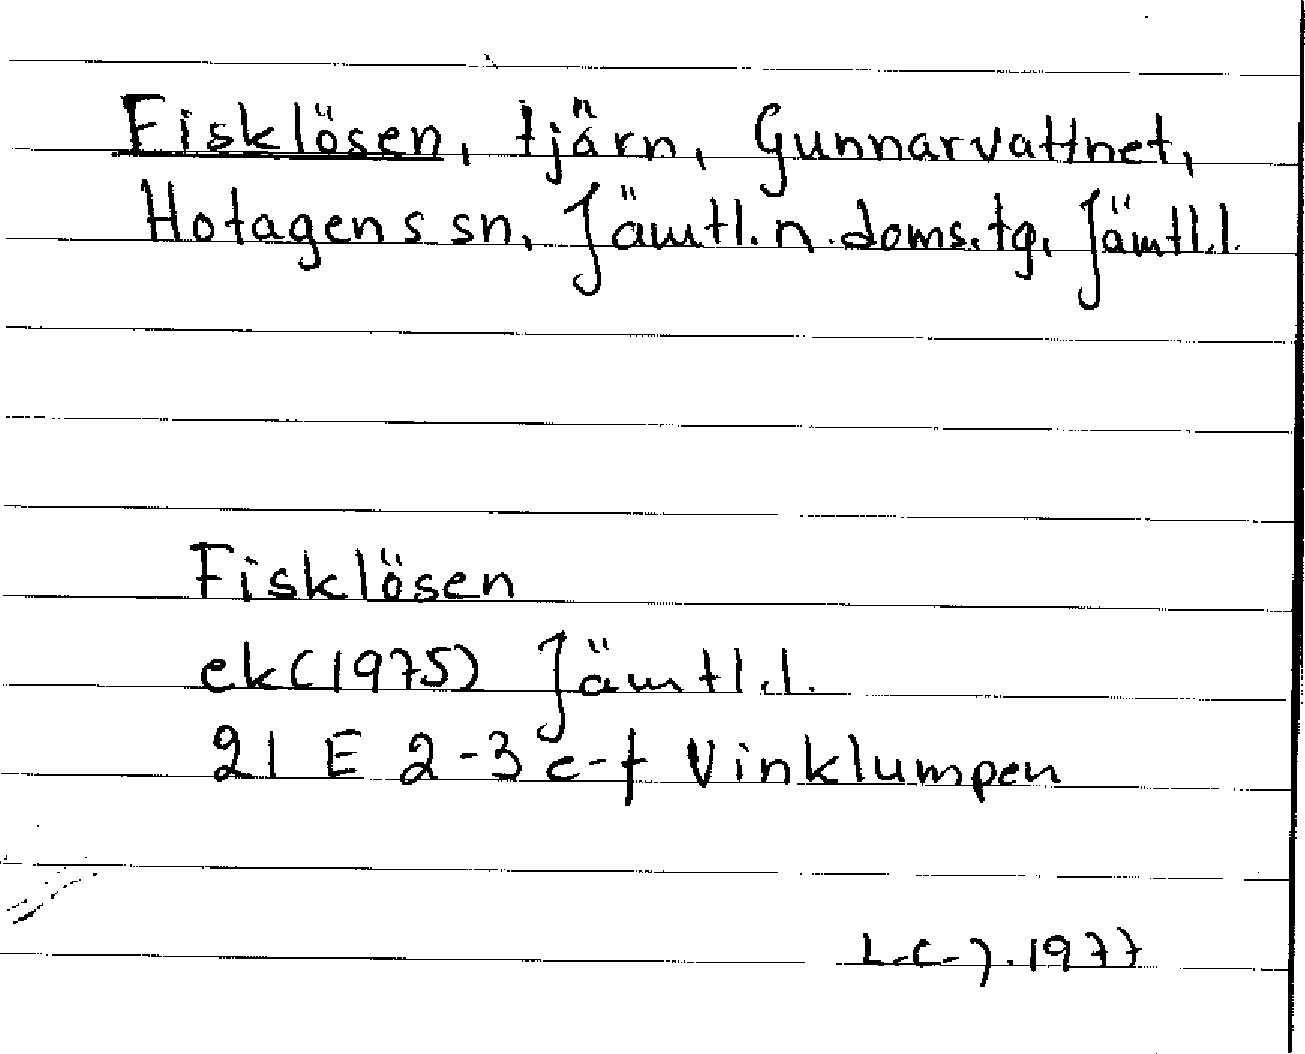 Fisklösen, tjärn, Gunnarvattnet,
Hotagens sn, Jämtl. n. doms. tg, Jämtl.l.
Fisklösen
ek (1975) Jämtl.l.
21 E 2-3 e-f Vinklumpen
L.C.J. 1977